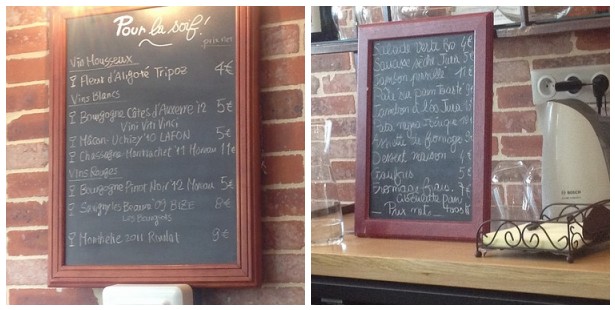 Pour la soif!
prix net
Vin Mousseux
Fleur d'Aligoté Tripoz 4€
Vins Blancs
Bourgogne Côtes d'Auxerre '12 5€
Vini Viti Vinci
Mâcon-Uchizy '10 LAFON 5€
Chassagne-Montrachet '11 Moreau 11€
Vins Rouges
Bourgogne Pinot Noir '12 Moreau 5€
Savigny les Beaune '09 BIZE 8€
Les Bourgeots
Monthelie 2011 9€
Salade Verte Bio 4€
Saucisse sèche Jura 5€
Jambon persillé 11€
Jambon à l'os Jura
Assiette de fromage
Dessert maison
5€
Fromage frais 7€
ciboulette pain
Prix net
BOSCH